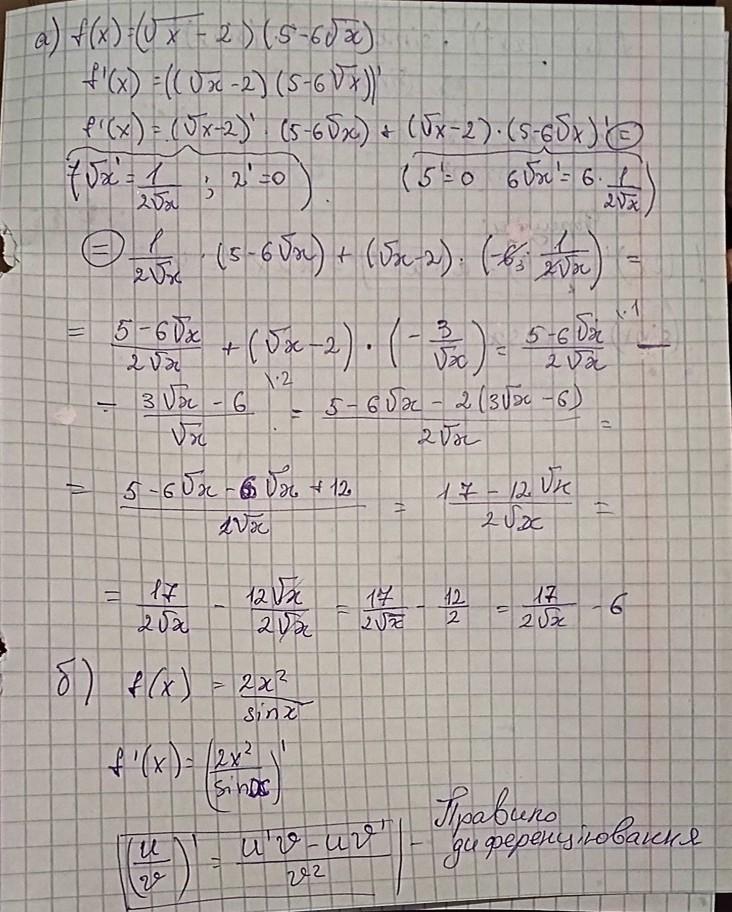 а) f(x)=(√x - 2)(5-6√x)
f'(x) = ((√x-2)(5-6√x))'
f'(x) = (√x-2)' · (5-6√x) + (√x-2) · (5-6√x)' =
(√x' = 1/(2√x) ; 2' = 0). (5' = 0 6√x' = 6 · 1/(2√x))
= 1/(2√x) · (5-6√x) + (√x-2) · (-6 3 · 1/(2√x)) =
= (5-6√x)/(2√x) + (√x-2) · (-3/√x) = (5-6√x)/(2√x) \·1 -
- (3√x - 6)/√x \·2 = (5-6√x - 2(3√x-6))/(2√x) =
= (5-6√x-6√x+12)/(2√x) = (17-12√x)/(2√x) =
= 17/(2√x) - 12√x/(2√x) = 17/(2√x) - 12/2 = 17/(2√x) - 6
б) f(x) = 2x²/sinx
f'(x) = (2x²/sinx)'
(u/v)' = (u'v - uv')/v² - Правило
диференціювання